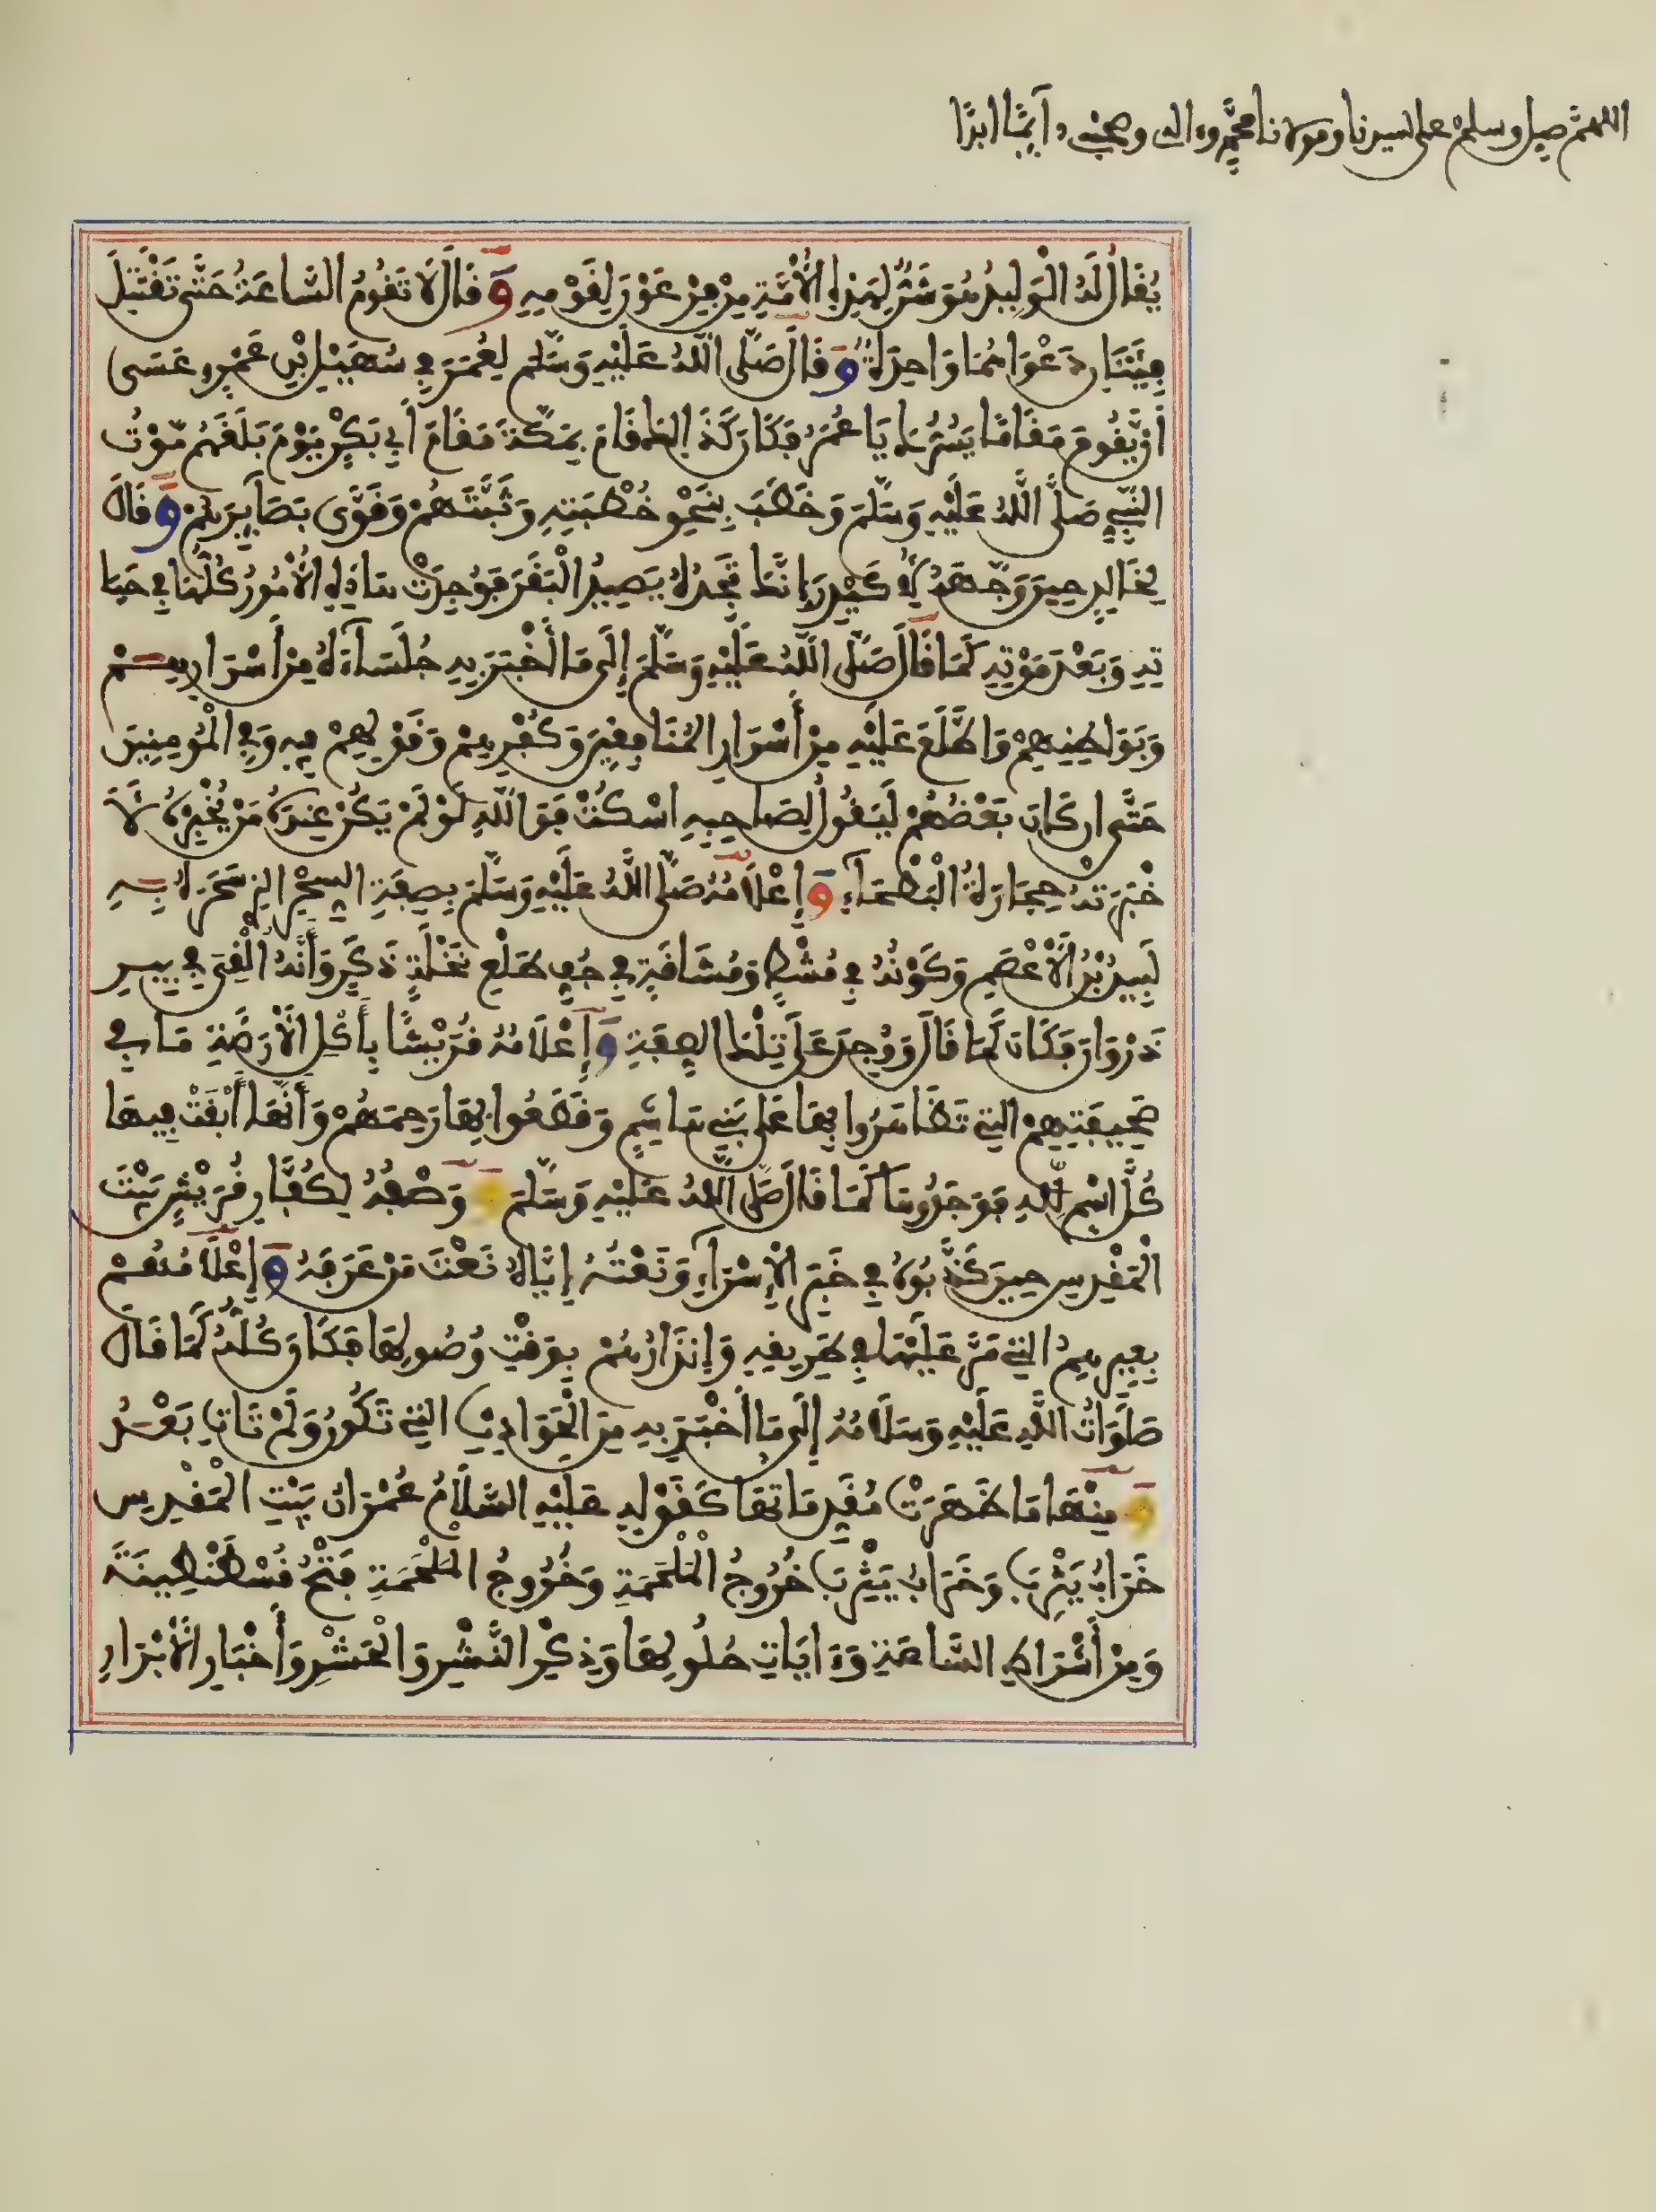 اللهم صل وسلم على سيدنا ومولانا محمد وءاله وصحبه دآئما ابدا
يُقَالُ لَهُ الْوَلِيدُ هُوَ شَرٌّ لِهَذِهِ الْأُمَّةِ مِنْ فِرْعَوْنَ لِقَوْمِهِ وَقَالَ لَا تَقُومُ السَّاعَةُ حَتَّى تَقْتَتِلَ
فِئَتَانِ دَعْوَاهُمَا وَاحِدَةٌ وَقَالَ صَلَّى اللَّهُ عَلَيْهِ وَسَلَّم لِعُمَرَ فِي سُهَيْلِ بْنِ عَمْرٍو عَسَى
أَنْ يَّقُومَ مَقَامًا يَسُرُّكَ يَا عُمَرُ فَكَانَ كَذَلِكَ قَامَ بِمَكَّةَ مَقَامَ أَبِي بَكْرٍ يَوْمَ بَلَغَهُمْ مَّوْتُ
النَّبِيِّ صَلَّى اللَّهُ عَلَيْهِ وَسَلَّمَ وَخَطَبَ بِنَحْوِ خُطْبَتِهِ وَثَبَّتَهُمْ وَقَوَّى بَصَآئِرَهُمْ وَقَالَ
لِخَالِدٍ حِينَ وَجَّهَهُ لِأُكَيْدِرَ إِنَّكَ تَجِدُهُ يَصِيدُ الْبَقَرَ فَوُجِدَتْ هَاذِهِ الْأُمُورُ كُلُّهَا فِي حَيَا
تِهِ وَبَعْدَ مَوْتِهِ كَمَا قَالَ صَلَّى اللَّهُ عَلَيْهِ وَسَلَّمَ إِلَى مَا أَخْبَرَ بِهِ جُلَسَآءَهُ مِنْ أَسْرَارِهِمْ
وَبَوَاطِنِهِمْ وَاطَّلَعَ عَلَيْهِ مِنْ أَسْرَارِ الْمُنَافِقِينَ وَكُفْرِهِمْ وَقَوْلِهِمْ فِيهِ وَفِي الْمُومِنِينَ
حَتَّى ان كَانَ بَعْضُهُمْ لَيَقُولُ لِصَاحِبِهِ اسْكُتْ فَوَاللَّهِ لَوْ لَمْ يَكُنْ عِنْدَهُ مَنْ يُخْبِرُهُ لَأَ
خْبَرَتْهُ حِجَارَةُ الْبَطْحَآءِ وَإِعْلَامُهُ صَلَّى اللَّهُ عَلَيْهِ وَسَلَّمَ بِصِفَةِ السِّحْرِ الذِي سَحَرَهُ بِهِ
لَبِيدُ بْنُ الْأَعْصَمِ وَكَوْنُهُ فِي مُشْطٍ وَمُشَاقَةٍ فِي جُفِّ طَلْعِ نَخْلَةٍ ذَكَرٍ وَأَنَّهُ أُلْقِيَ فِي بِيرِ
ذَرْوَانَ فَكَانَ كَمَا قَالَ وَوُجِدَ عَلَى تِلْكَ الصِّفَةِ وَإِعْلَامُهُ قُرَيْشًا بِأَكْلِ الْأَرَضَةِ مَا فِي
صَحِيفَتِهِمْ التِي تَظَاهَرُوا بِهَا عَلَى بَنِي هَاشِمٍ وَقَطَعُوا بِهَا رَحِمَهُمْ وَأَنَّهَا أَبْقَتْ فِيهَا
كُلَّ اسْمٍ لِّلَّهِ فَوَجَدُوهَا كَمَا قَالَ صَلَّى اللَّهُ عَلَيْهِ وَسَلَّمَ وَوَصْفُهُ لِكُفَّارِ قُرَيْشٍ بَيْتَ
الْمَقْدِسِ حِينَ كَذَّبُوهُ فِي خَبَرِ الْإِسْرَآءِ وَنَعْتُهُ إِيَّاهُ نَعْتَ مَنْ عَرَفَهُ وَإِعْلَامُهُمْ
بِعِيرِهِمُ التِي مَرَّ عَلَيْهَا فِي طَرِيقِهِ وَإِنْذَارُهُمْ بِوَقْتِ وُصُولِهَا فَكَانَ كُلُّهُ كَمَا قَالَ
صَلَوَاتُ اللَّهِ عَلَيْهِ وَسَلَامُهُ إِلَى مَا أَخْبَرَ بِهِ مِنَ الْحَوَادِثِ التِي تَكُونُ وَلَمْ تَاتِ بَعْدُ
وَمِنْهَا مَا ظَهَرَتْ مُقَدِّمَاتُهَا كَقَوْلِهِ عَلَيْهِ السَّلَامُ عُمْرَانُ بَيْتِ الْمَقْدِسِ
خَرَابُ يَثْرِبَ وَخَرَابُ يَثْرِبَ خُرُوجُ الْمَلْحَمَةِ وَخُرُوجُ الْمَلْحَمَةِ فَتْحُ قُسْطَنْطِينَةَ
وَمِنْ أَشْرَاطِ السَّاعَةِ وَءَايَاتِ حُلُولِهَا وَذِكْرِ النَّشْرِ وَالْحَشْرِ وَأَخْبَارِ الْأَبْرَارِ